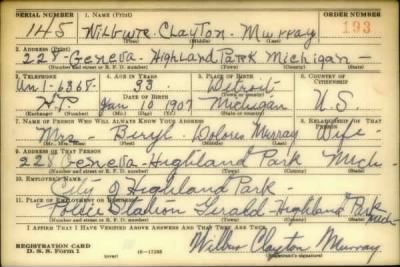 SERIAL NUMBER 1. NAME (Print) ORDER NUMBER
145 Wilbure Clayton Murray 193
(First) (Middle) (Last)
2. ADDRESS (Print)
228 - Geneva - Highland Park Michigan -
(Number and street or R. F. D. number) (Town) (County) (State)
3. TELEPHONE 4. AGE IN YEARS 5. PLACE OF BIRTH 6. COUNTRY OF CITIZENSHIP
Un 1-6368- 33 Detroit
DATE OF BIRTH (Town or county)
H.P. Jan 10 1907 Michigan U.S.
(Exchange) (Number) (Mo.) (Day) (Yr.) (State or country)
7. NAME OF PERSON WHO WILL ALWAYS KNOW YOUR ADDRESS 8. RELATIONSHIP OF THAT PERSON
Mrs - Beryl Dolores Murray Wife -
(Mr., Mrs., Miss) (First) (Middle) (Last)
9. ADDRESS OF THAT PERSON
228 Geneva - Highland Park Mich -
(Number and street or R. F. D. number) (Town) (County) (State)
10. EMPLOYER'S NAME
City of Highland Park -
11. PLACE OF EMPLOYMENT OR BUSINESS
Police Station Gerald - Highland Park Mich
(Number and street or R. F. D. number) (Town) (County) (State)
I AFFIRM THAT I HAVE VERIFIED ABOVE ANSWERS AND THAT THEY ARE TRUE.
REGISTRATION CARD
D. S. S. Form 1 (over) 16-17105 Wilbur Clayton Murray
(Registrant's signature)